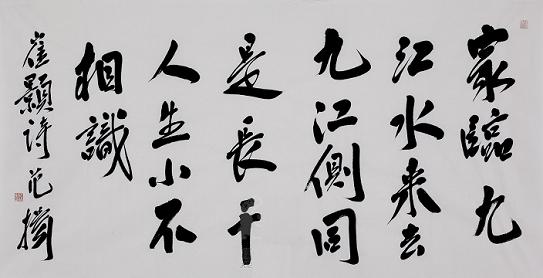 家臨九
江水来去
九江側同
是長干
人生小不
相識
崔顥詩范